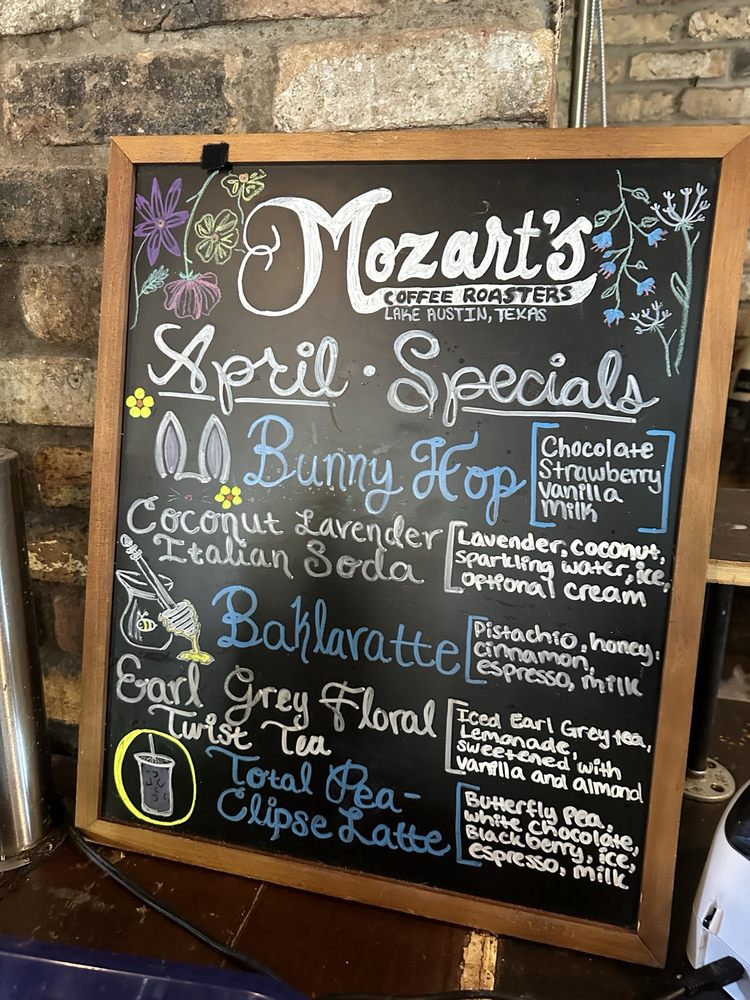 Mozart's
COFFEE ROASTERS
LAKE AUSTIN, TEXAS
April · Specials
Bunny Hop
Chocolate
Strawberry
Vanilla
Milk
Coconut Lavender
Italian Soda
Lavender, coconut,
sparkling water, ice,
optional cream
Baklaratte
Pistachio, honey,
cinnamon,
espresso, milk
Earl Grey Floral
Twist Tea
Iced Earl Grey tea,
Lemonade,
sweetened with
vanilla and almond
Total Pea-
Clipse Latte
Butterfly Pea,
white chocolate,
Blackberry, ice,
espresso, milk